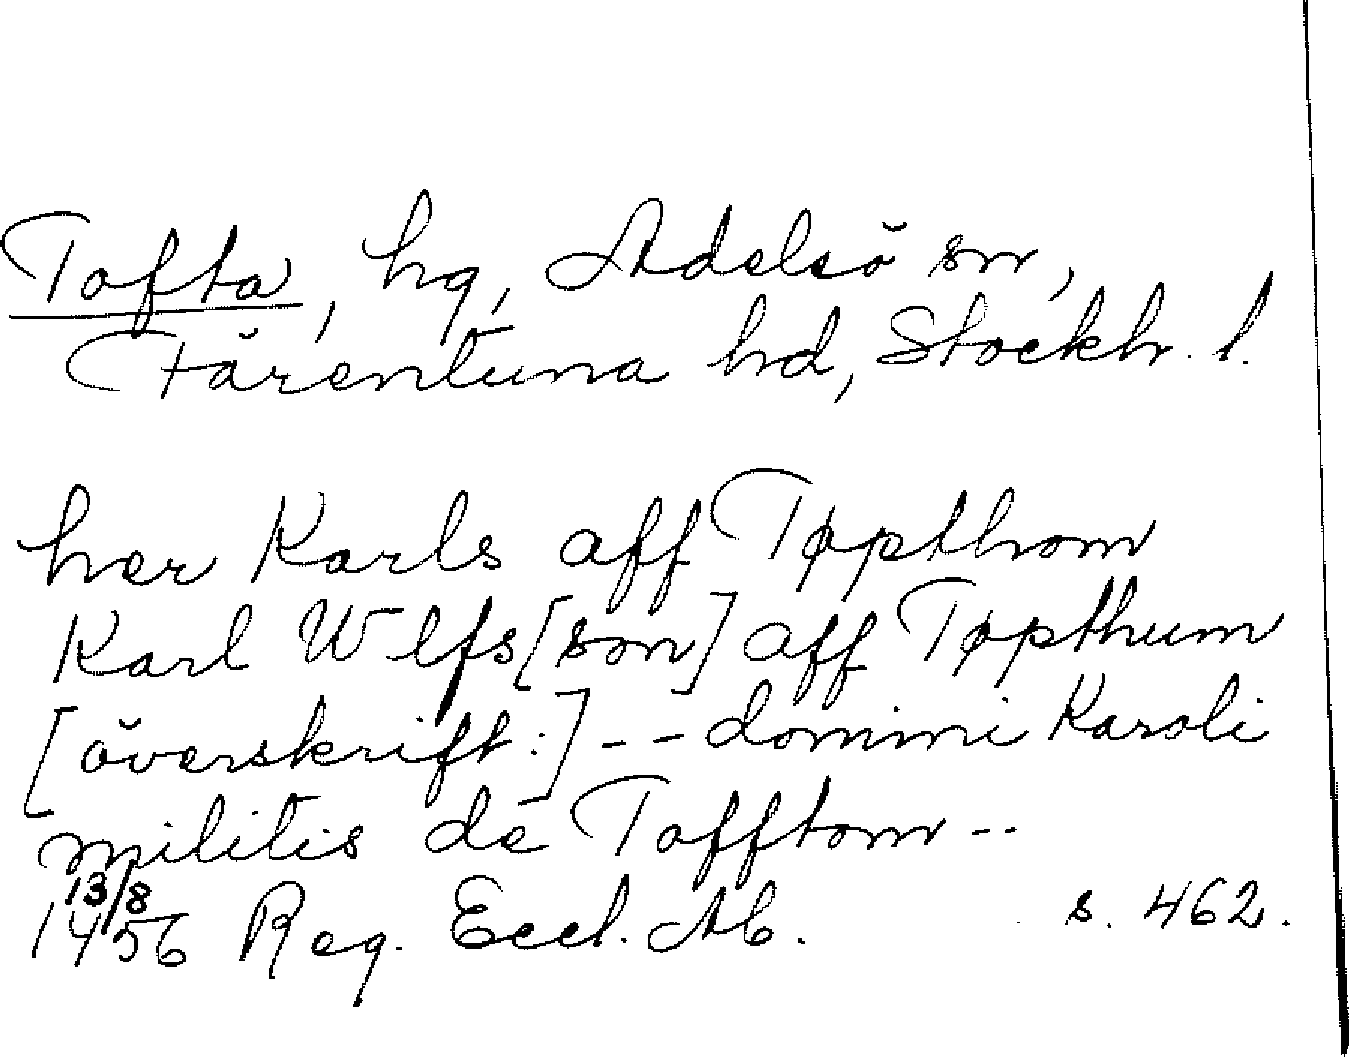 Tofta, hg, Adelsö sn,
Färentuna hd, Stockh. l.
her Karls aff Tøpthom
Karl Wlfs[son] aff Tøpthum
[överskrift:] -- domini Karoli
militis de Tofftom --
13/8
1456 Reg. Eccl. Ab. s. 462.